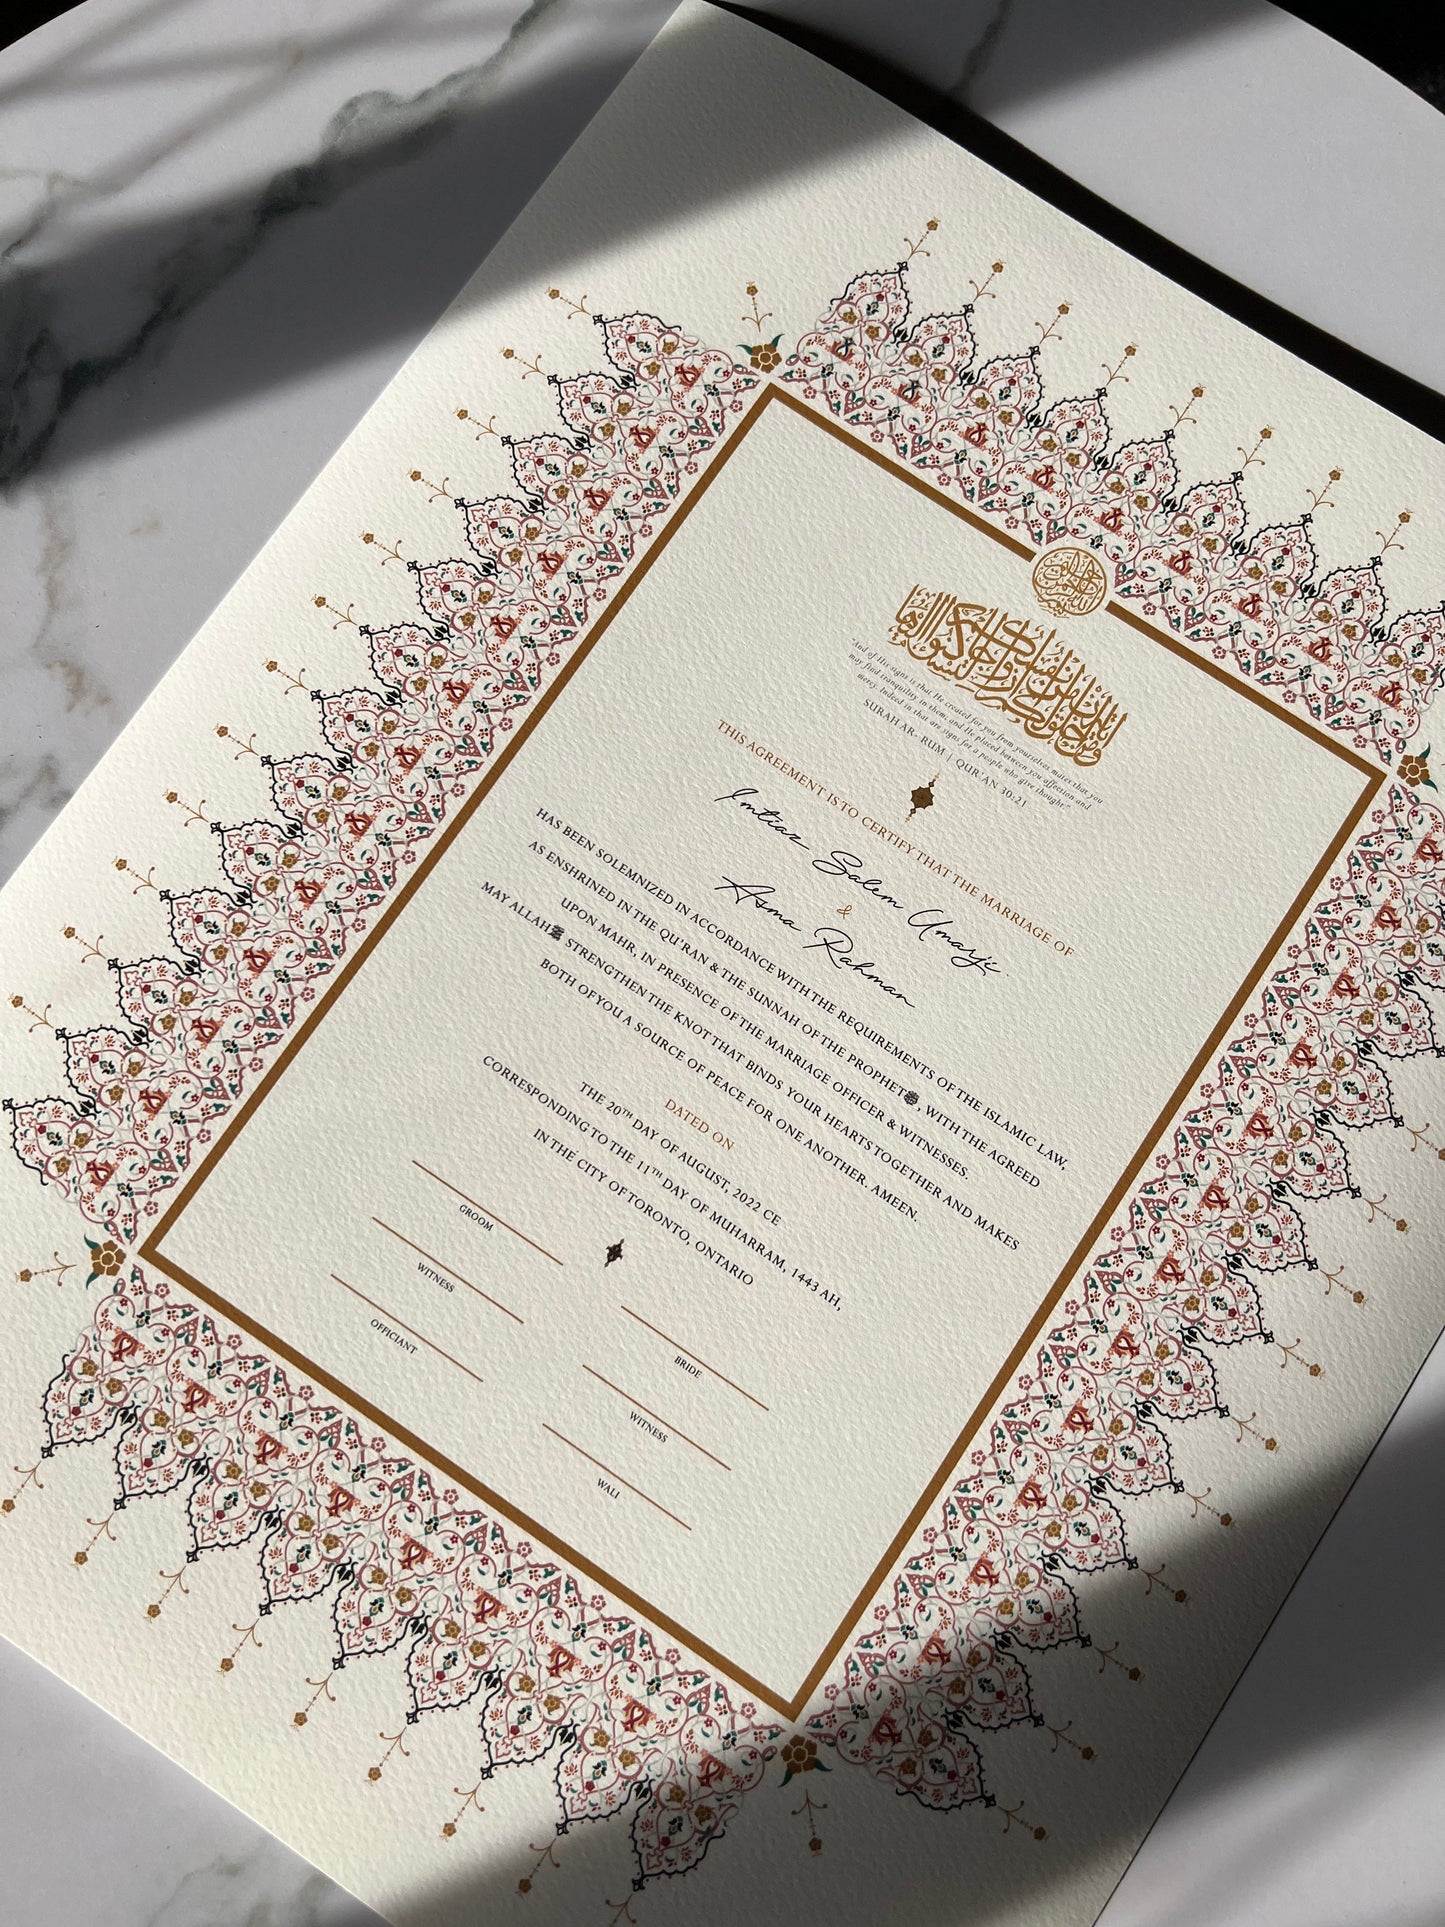 "And of His signs is that He created for you from yourselves mates that you
may find tranquility in them; and He placed between you affection and
mercy. Indeed in that are signs for a people who give thought."
SURAH AR-RUM | QUR'AN 30:21
THIS AGREEMENT IS TO CERTIFY THAT THE MARRIAGE OF
Imtiaz Salem Umarji
&
Asma Rahman
HAS BEEN SOLEMNIZED IN ACCORDANCE WITH THE REQUIREMENTS OF THE ISLAMIC LAW,
AS ENSHRINED IN THE QU'RAN & THE SUNNAH OF THE PROPHET ﷺ, WITH THE AGREED
UPON MAHR, IN PRESENCE OF THE MARRIAGE OFFICER & WITNESSES.
MAY ALLAH STRENGTHEN THE KNOT THAT BINDS YOUR HEARTS TOGETHER AND MAKES
BOTH OF YOU A SOURCE OF PEACE FOR ONE ANOTHER. AMEEN.
DATED ON
THE 20TH DAY OF AUGUST, 2022 CE
CORRESPONDING TO THE 11TH DAY OF MUHARRAM, 1443 AH,
IN THE CITY OF TORONTO, ONTARIO
GROOM
BRIDE
WITNESS
WITNESS
OFFICIANT
WALI